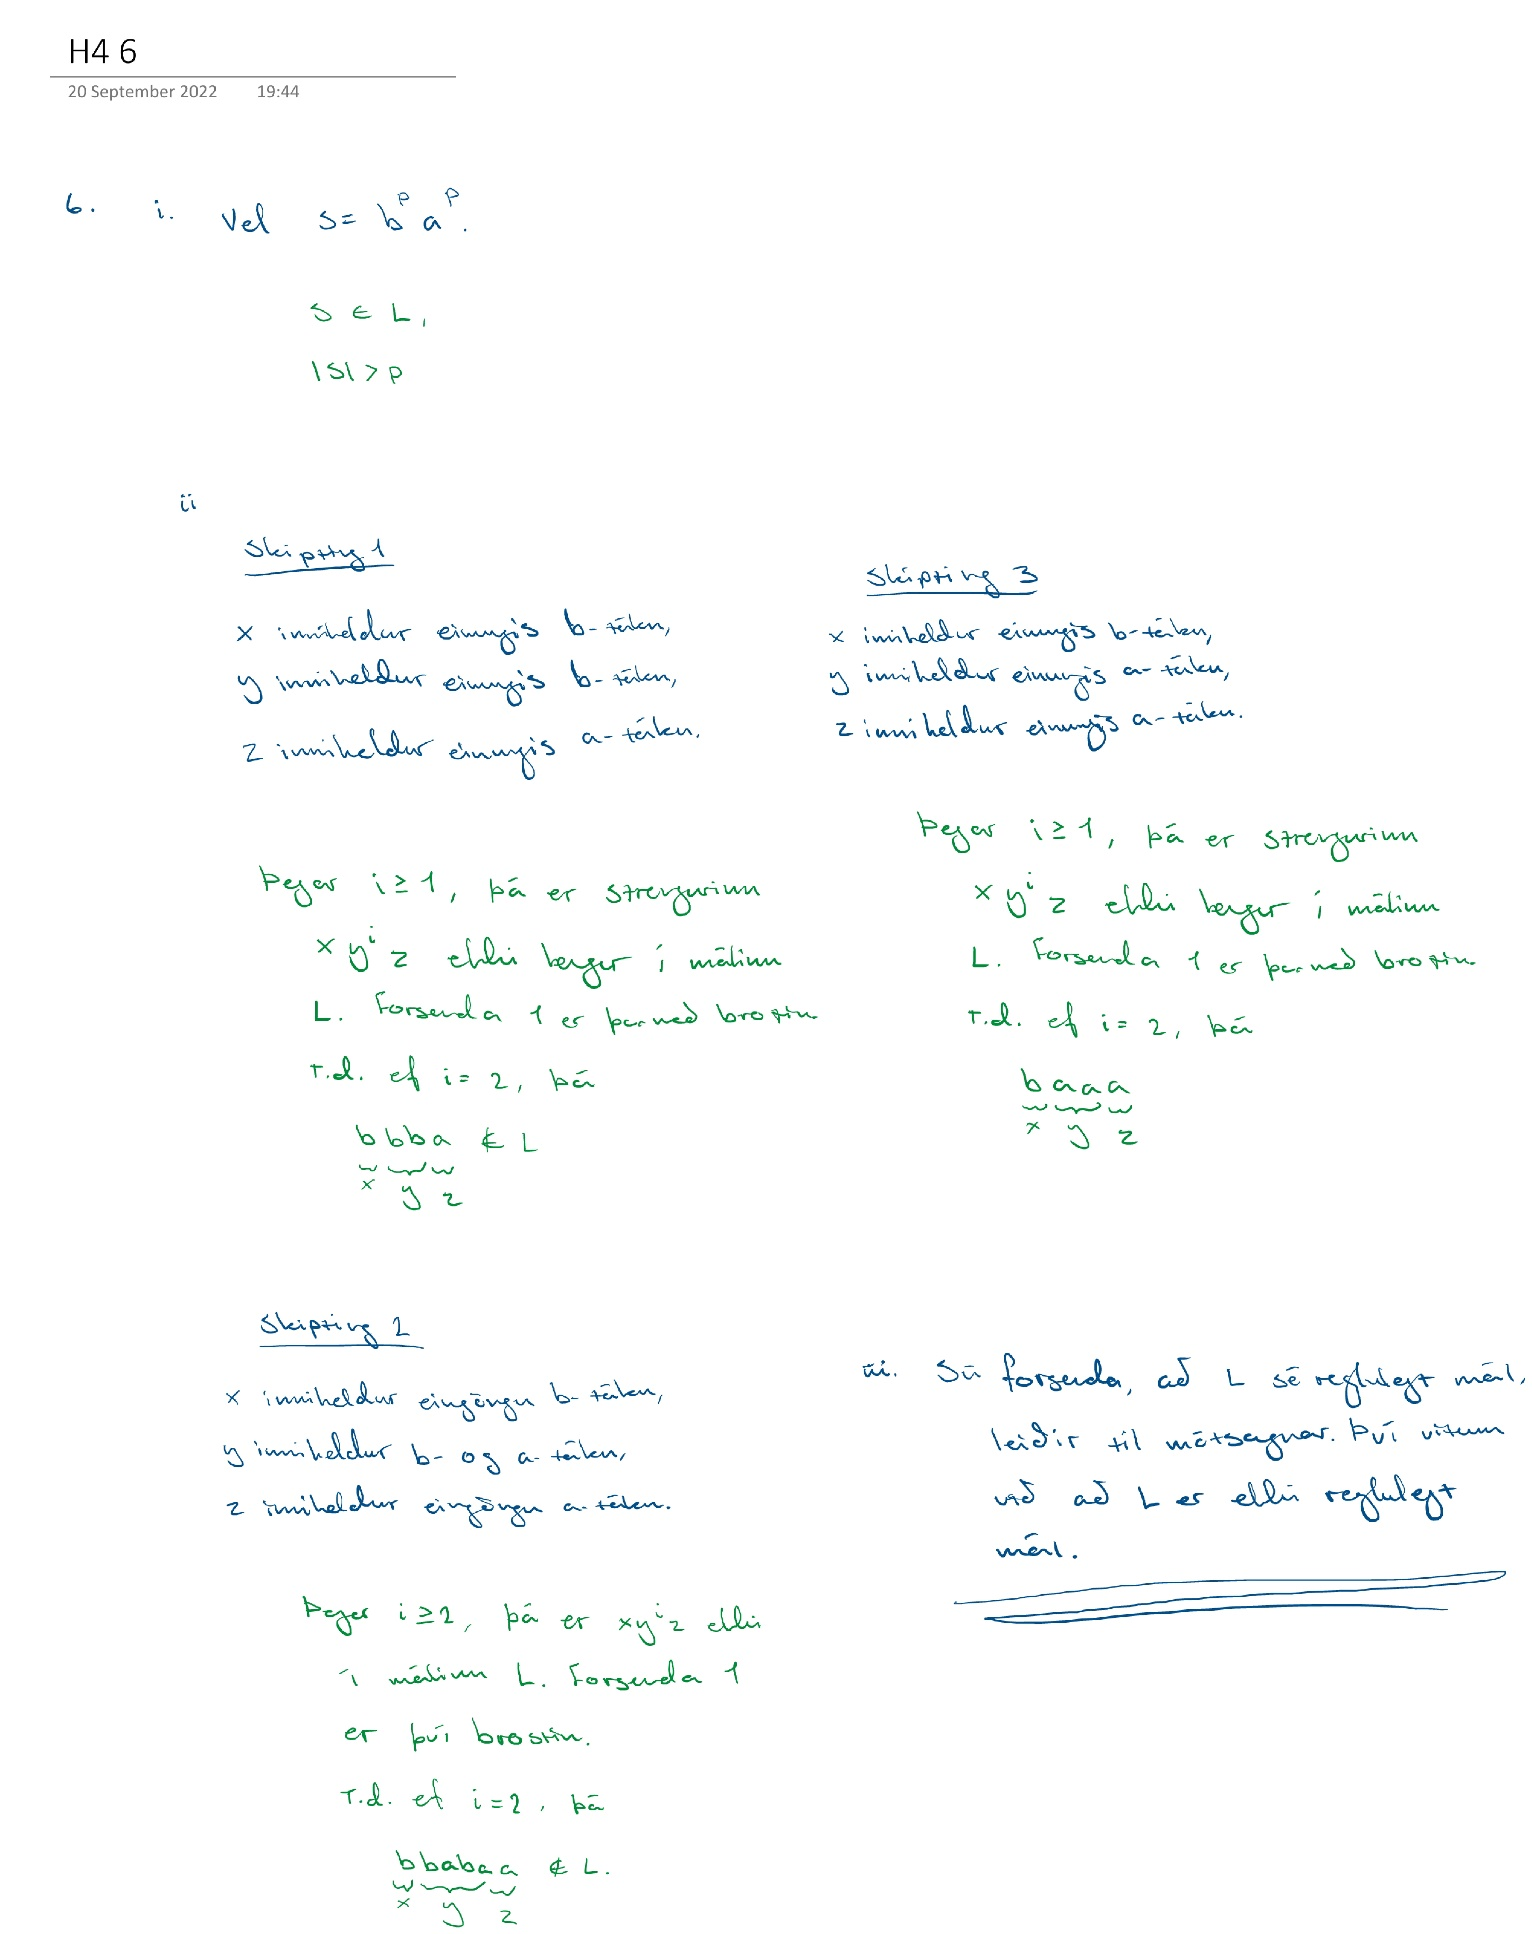 H4 6
20 September 2022 19:44
6. i. Vel s = b^p a^p.
s ∈ L,
|s| > p
ii
Skipting 1
x inniheldur einungis b-tákn,
y inniheldur einungis b-tákn,
z inniheldur einungis a-tákn.
Þegar i ≥ 1, þá er strengurinn
x y^i z ekki lengur í málinu
L. Forsenda 1 er þar með brotin.
T.d. ef i = 2, þá
b b b a ∉ L
x y z
Skipting 2
x inniheldur eingöngu b-tákn,
y inniheldur b- og a-tákn,
z inniheldur eingöngu a-tákn.
Þegar i ≥ 2, þá er xy^i z ekki
í málinu L. Forsenda 1
er því brostin.
T.d. ef i = 2, þá
b babaa a ∉ L.
x y z
Skipting 3
x inniheldur einungis b-tákn,
y inniheldur einungis a-tákn,
z inniheldur einungis a-tákn.
Þegar i ≥ 1, þá er strengurinn
x y^i z ekki lengur í málinu
L. Forsenda 1 er þar með brotin.
T.d. ef i = 2, þá
b a a a
x y z
iii. Sú forsenda, að L sé reglulegt mál,
leiðir til mótsagnar. Því vitum
við að L er ekki reglulegt
mál.